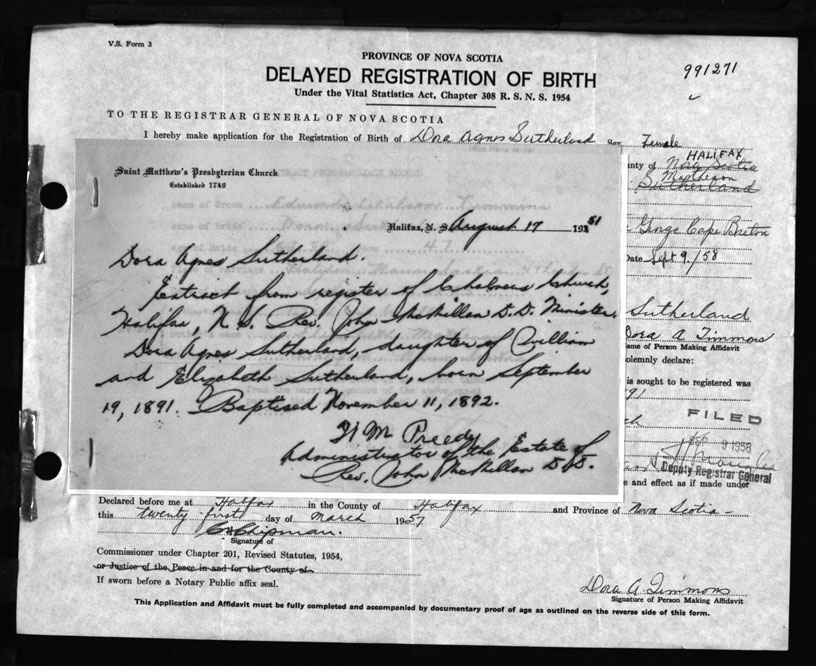 V.S. Form 3
PROVINCE OF NOVA SCOTIA
DELAYED REGISTRATION OF BIRTH
991271
Under the Vital Statistics Act, Chapter 308 R. S. N. S. 1954
TO THE REGISTRAR GENERAL OF NOVA SCOTIA
I hereby make application for the Registration of Birth of Dora Agnes Sutherland Sex Female
HALIFAX
nty of Nova Scotia
Matheson
Sutherland
George Cape Breton
Date Sept 9/58
Sutherland
Dora A Timmons
me of Person Making Affidavit
olemnly declare:
is sought to be registered was
91
FILED
9 1958
Deputy Registrar General
e and effect as if made under
Saint Matthew's Presbyterian Church
Established 1749
Halifax, N. S. August 17 1951
Dora Agnes Sutherland.
Extract from register of Chalmers Church,
Halifax, N.S. Rev. John McMillan D.D. Minister.
Dora Agnes Sutherland, daughter of William
and Elizabeth Sutherland, born September
19, 1891. Baptised November 11, 1892.
H M Preedy
Administrator of the Estate of
Rev. John McMillan D.D.
Declared before me at Halifax in the County of Halifax and Province of Nova Scotia
this twenty first day of March 1957
Signature of
Commissioner under Chapter 201, Revised Statutes, 1954,
or Justice of the Peace in and for the County of
If sworn before a Notary Public affix seal.
Dora A. Timmons
Signature of Person Making Affidavit
This Application and Affidavit must be fully completed and accompanied by documentary proof of age as outlined on the reverse side of this form.